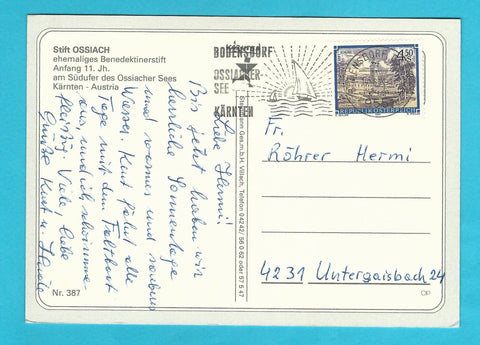 Stift OSSIACH
ehemaliges Benediktinerstift
Anfang 11. Jh.
am Südufer des Ossiacher Sees
Kärnten - Austria
BODENSDORF
OSSIACHER-
SEE
KÄRNTEN
4.50
REPUBLIK ÖSTERREICH
Liebe Hermi!
Bis jetzt haben wir
herrliche Sonnentage
und warmes und sauberes
Wasser. Kurt fährt alle
Tage mit dem Faltboot
aus, und ich schwimme
fleißig. Viele, liebe
Grüße Kurt u.
Ges.m.b.H. Villach, Telefon 04242/
Fr.
Röhrer Hermi
4231 Untergaisbach 24
Nr. 387